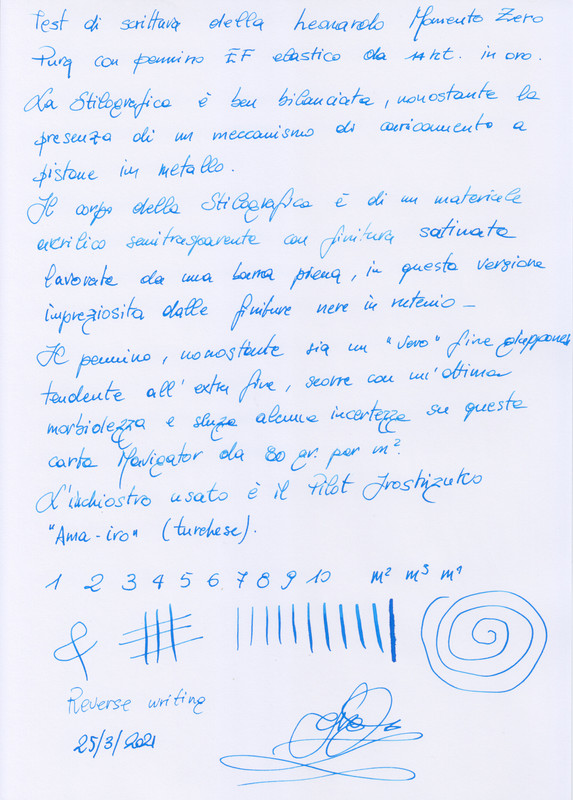 Test di scrittura della Leonardo Momento Zero
Pura con pennino EF elastico da 14 kt. in oro.
La Stilografica è ben bilanciata, nonostante la
presenza di un meccanismo di caricamento a
pistone in metallo.
Il corpo della Stilografica è di un materiale
acrilico semitrasparente con finitura satinata
lavorata da una barra piena, in questa versione
impreziosita dalle finiture nere in rutenio -
Il pennino, nonostante sia un "vero" fine giapponese
tendente all'extra fine, scorre con un'ottima
morbidezza e senza alcuna incertezza su questa
carta Navigator da 80 gr. per m².
L'inchiostro usato è il Pilot Iroshizuku
"Ama-iro" (turchese).
1 2 3 4 5 6 7 8 9 10 m² m³ m⁴
&
Reverse writing
25/3/2021